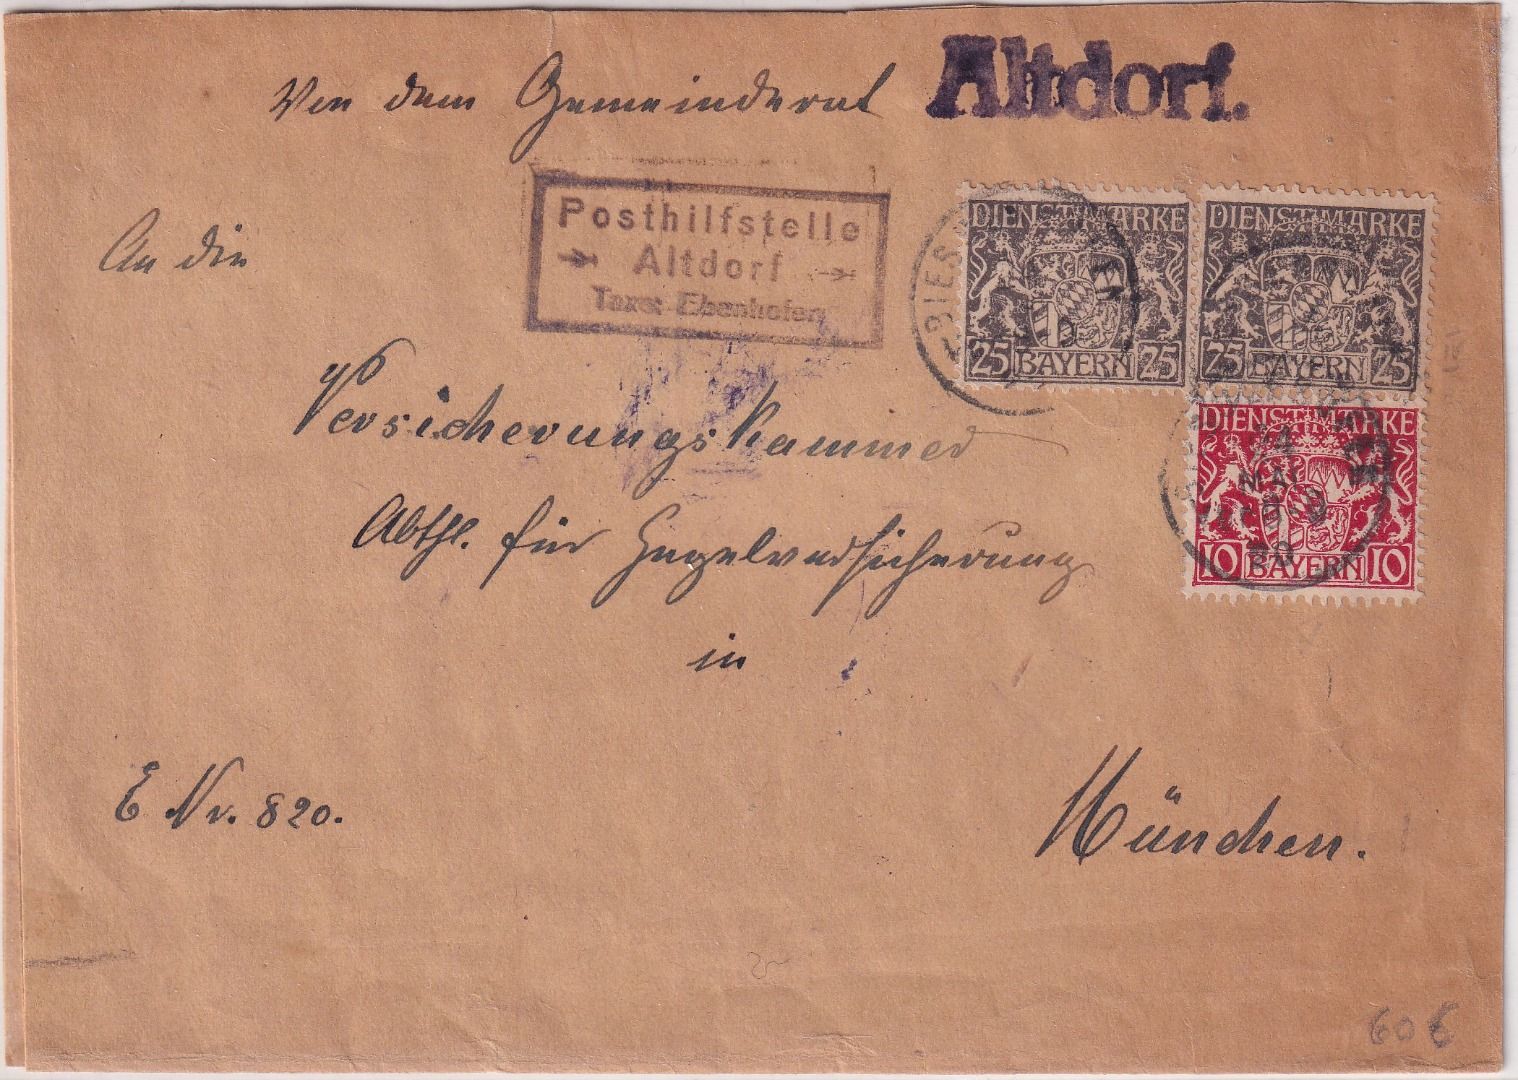 Von dem Gemeinderat Altdorf.
Posthilfstelle
Altdorf
Taxe: Ebenhofen
An die
Versicherungskammer
Abthl. für Hagelversicherung
in
München.
E Nr. 820.
DIENSTMARKE
25 BAYERN 25
DIENSTMARKE
25 BAYERN 25
DIENSTMARKE
10 BAYERN 10
BIES
EN
24
MAI
20
60 €